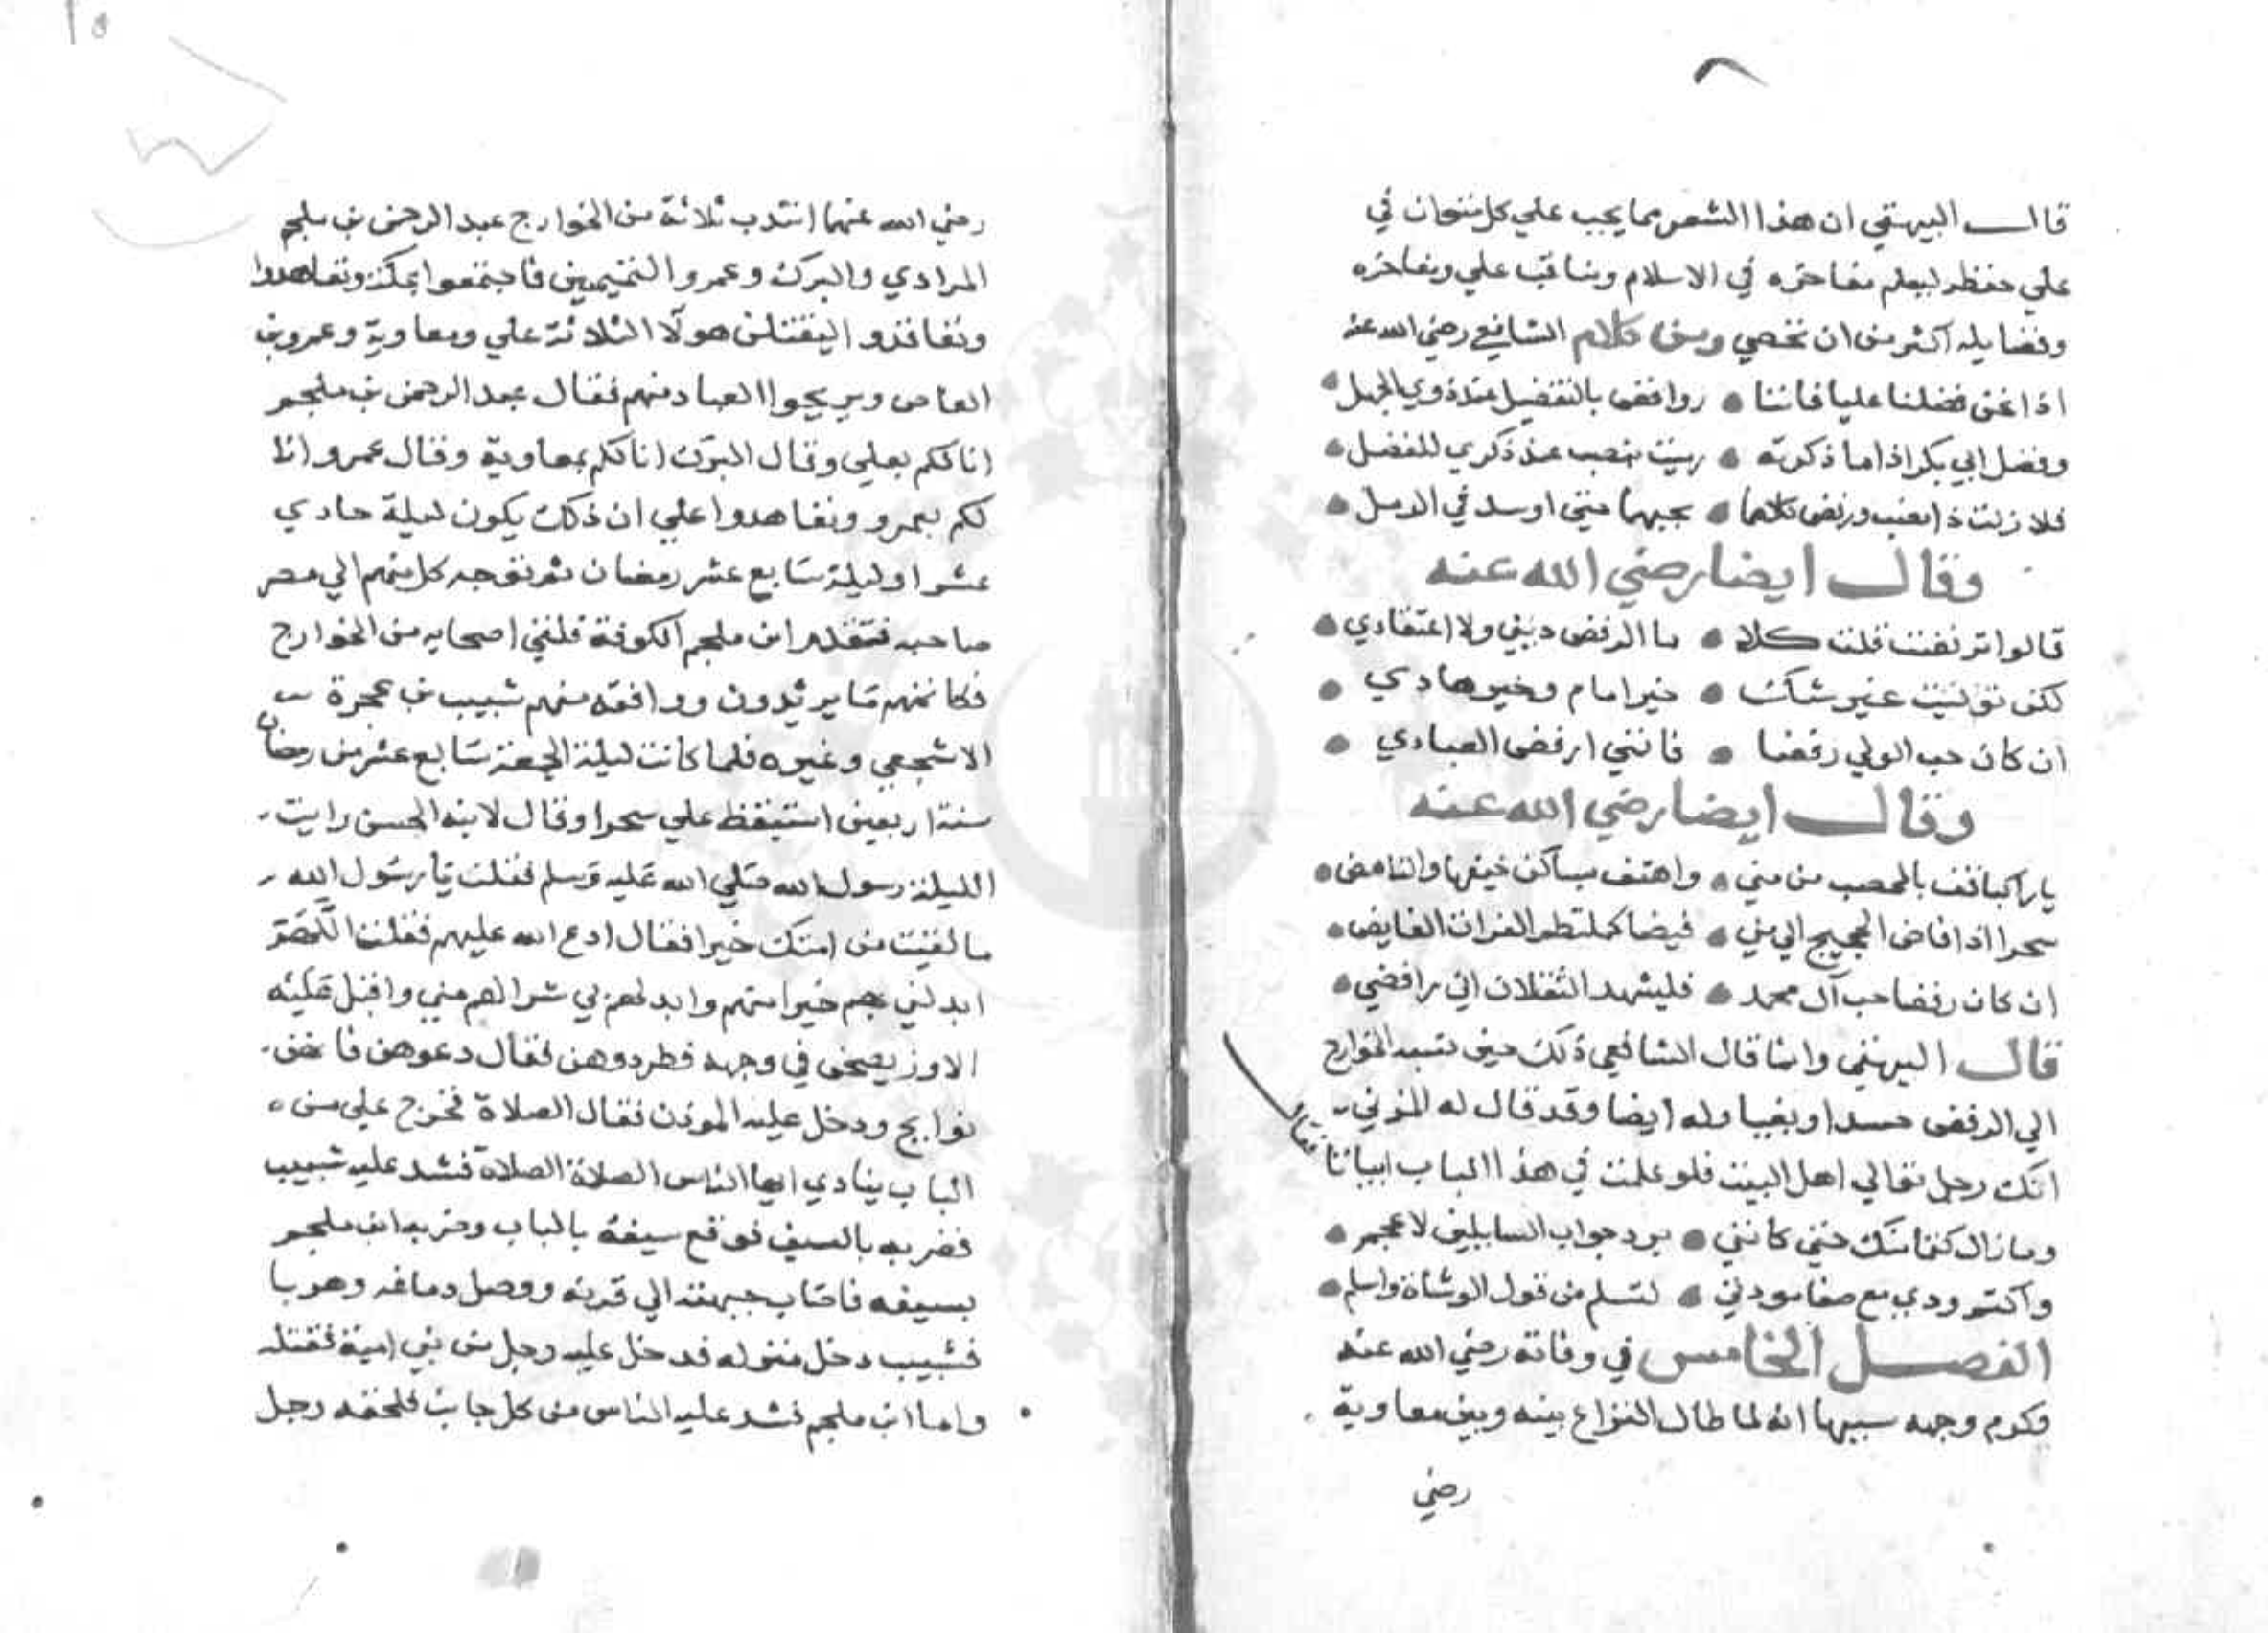 قال البيهقي ان هذا الشعر مما يجب علي كل متوان في
علي حفظه ليعلم مفاخره في الاسلام ومناقب علي ومفاخره
وفضايله اكثر من ان تحصي ومن كلام الشافعي رضي الله عنه
اذا نحن فضلنا عليا فاننا • روافض بالتفضيل عند ذوي الجهل •
وفضل ابي بكر اذا ما ذكرته • رميت بنصب عند ذكري للفضل •
فلا زلت ذا نصب ورفض كلاهما • بحبهما حتي اوسد في الرمل •
وقال ايضا رضي الله عنه
قالوا ترفضت قلت كلا • ما الرفض ديني ولا اعتقادي •
لكن توليت غير شك • خير امام وخير هادي •
ان كان حب الولي رفضا • فانني ارفض العبادي •
وقال ايضا رضي الله عنه
يا راكبا قف بالمحصب من مني • واهتف بساكن خيفها والناهض •
سحرا اذا فاض الحجيج الي مني • فيضا كملتطم الفرات الفايض •
ان كان رفضا حب آل محمد • فليشهد الثقلان اني رافضي •
قال البيهقي وانما قال الشافعي ذلك حين نسبه الخوارج
الي الرفض حسدا وبغيا وله ايضا وقد قال له المزني
انك رجل توالي اهل البيت فلو عملت في هذا الباب ابياتا فقال
وما زال كتمانيك حتي كانني • برد جواب السايلين لاعجم •
واكتم ودي مع صفا مودتي • لتسلم من قول الوشاة واسلم •
الفصل الخامس في وفاته رضي الله عنه
وكرم وجهه سببها انه لما طال النزاع بينه وبين معاوية
رضي
١٥
رضي الله عنهما انتدب ثلاثة من الخوارج عبد الرحمن بن ملجم
المرادي والبرك وعمرو التميميين فاجتمعوا بمكة وتعاهدوا
وتعاقدوا ليقتلن هولا الثلاثة علي ومعاوية وعمرو بن
العاص ويريحوا العباد منهم فقال عبد الرحمن بن ملجم
انا لكم بعلي وقال البرك انا لكم بمعاوية وقال عمرو انا
لكم بعمرو وتعاهدوا علي ان ذلك يكون ليلة حادي
عشر او ليلة سابع عشر رمضان ثم توجه كل منهم الي مصر
صاحبه فقدم ابن ملجم الكوفة فلقي اصحابه من الخوارج
فكاتمهم ما يريدون ووافقه منهم شبيب بن عجرة
الاشجعي وغيره فلما كانت ليلة الجمعة سابع عشر من رمضان
سنة اربعين استيقظ علي سحرا وقال لابنه الحسن رايت
الليلة رسول الله صلي الله عليه وسلم فقلت يا رسول الله
ما لقيت من امتك خيرا فقال ادع الله عليهم فقلت اللهم
ابدلني بهم خيرا منهم وابدلهم بي شرا لهم مني واقبل عليه
الاوز يصحن في وجهه فطردوهن فقال دعوهن فانهن
نوايح ودخل عليه الموذن فقال الصلاة فخرج علي من
الباب ينادي ايها الناس الصلاة الصلاة فشد عليه شبيب
فضربه بالسيف فوقع سيفه بالباب وضربه ابن ملجم
بسيفه فاصاب جبهته الي قرنه ووصل دماغه وهربا
فشبيب دخل منزله فدخل عليه رجل من بني امية فقتله
واما ابن ملجم فشد عليه الناس من كل جانب فلحقه رجل